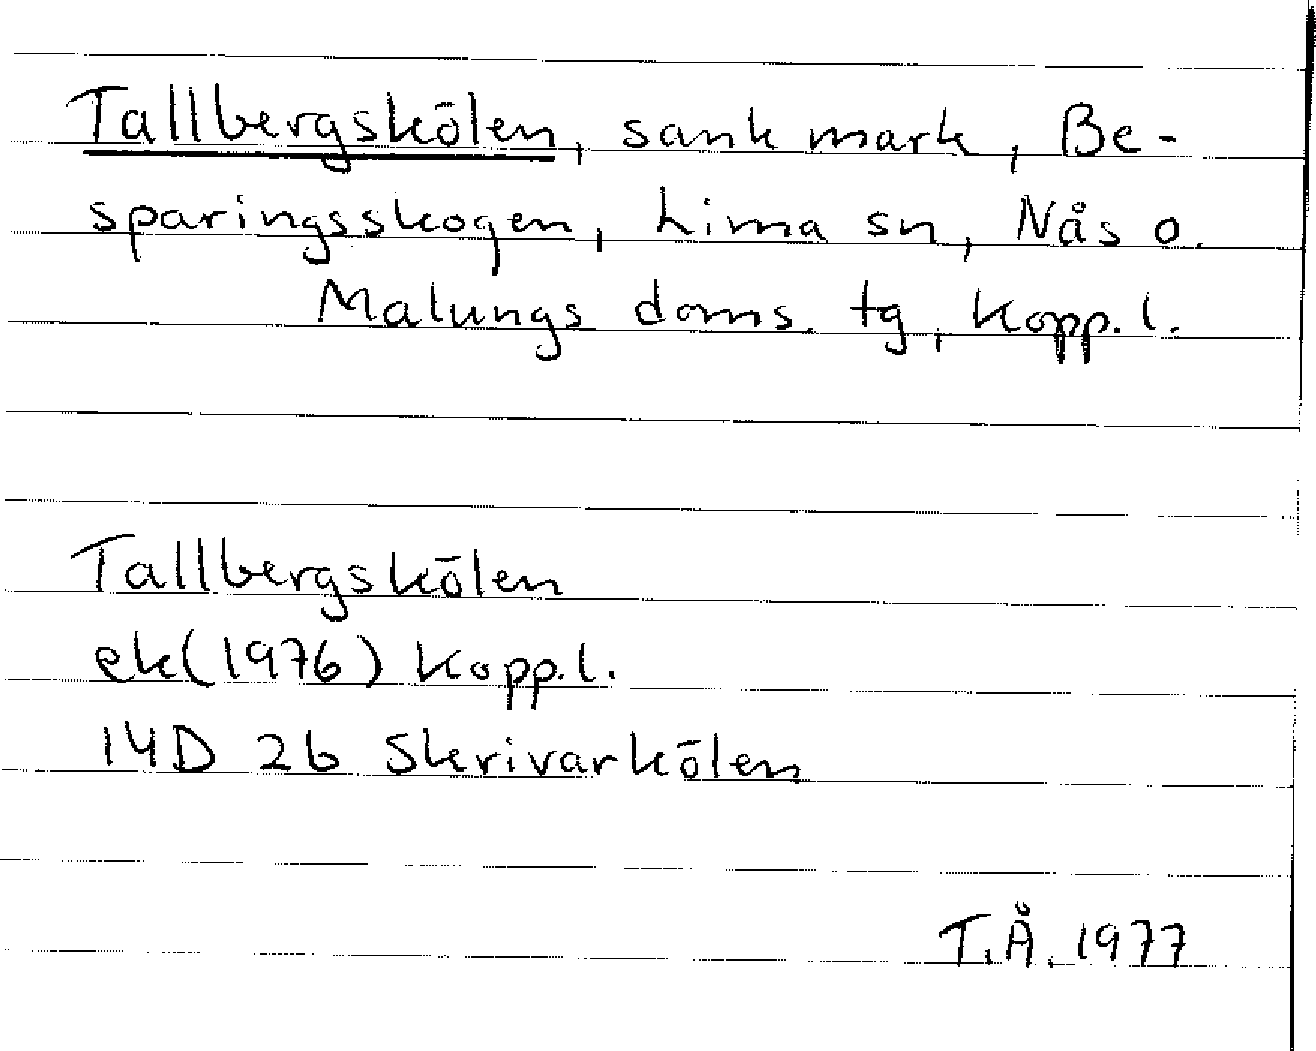 Tallbergskölen, sank mark, Be-
sparingsskogen, Lima sn, Nås o.
Malungs doms. tg, Kopp. l.
Tallbergskölen
ek (1976) Kopp. l.
14D 2b Skrivarkölen
T.Å. 1977